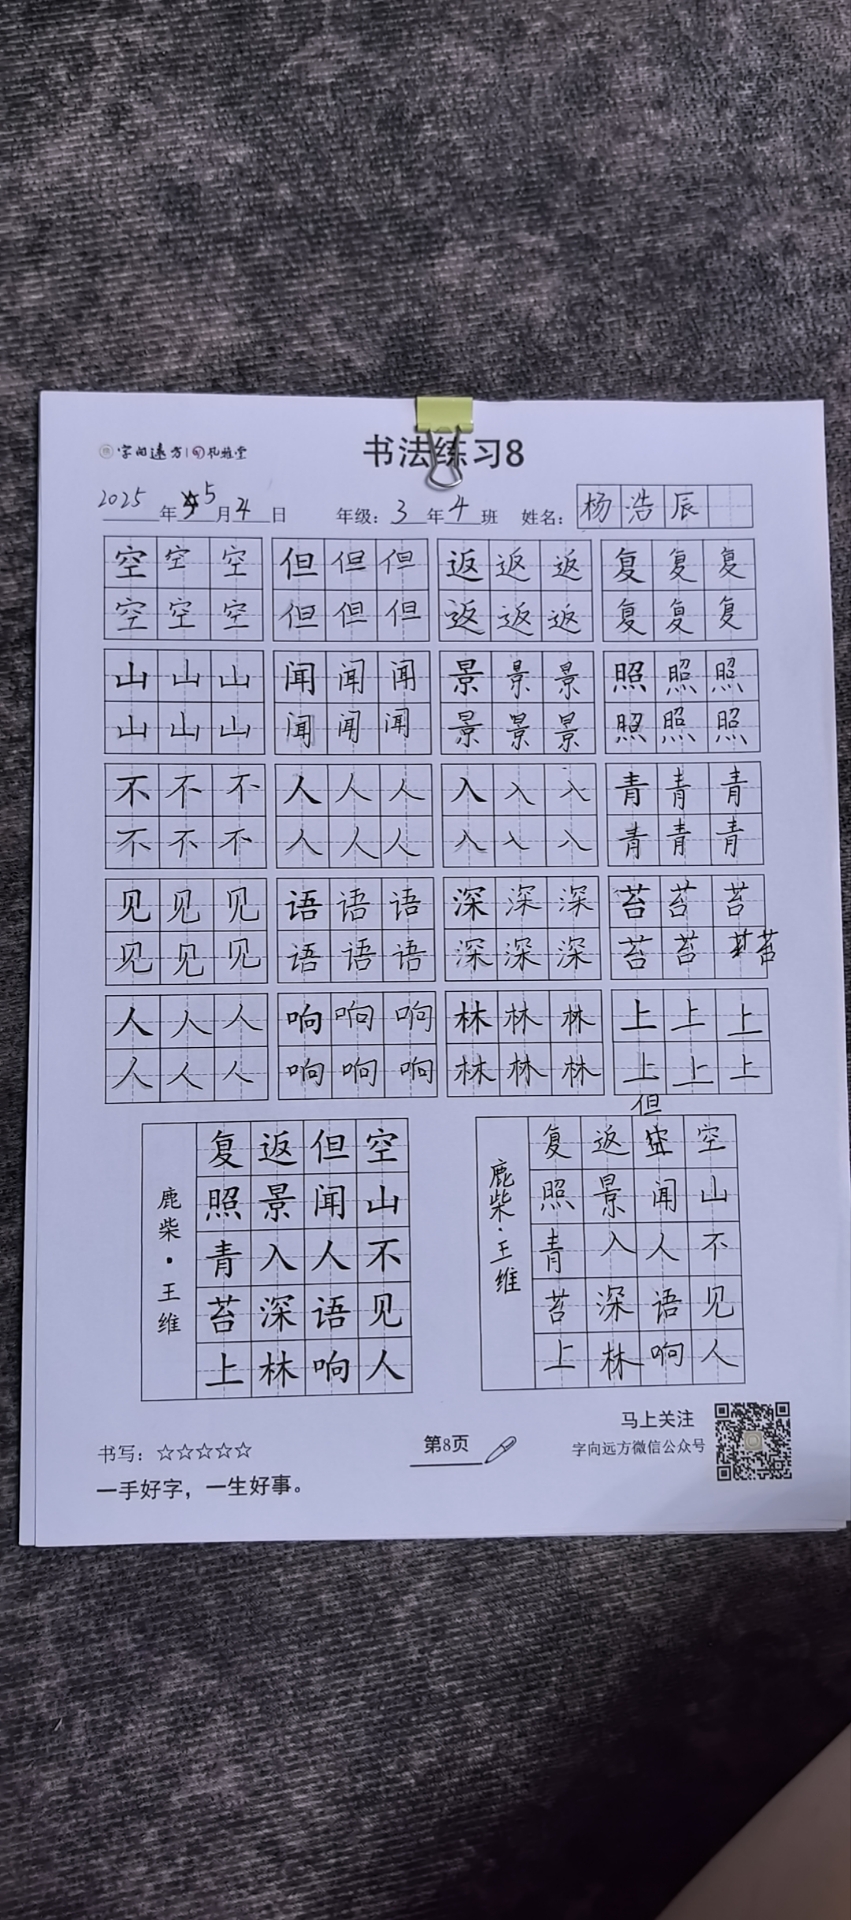 字向远方 礼雅堂
书法练习8
2025年5月4日 年级：3年4班 姓名：杨浩辰
空空空 但但但 返返返 复复复
空空空 但但但 返返返 复复复
山山山 闻闻闻 景景景 照照照
山山山 闻闻闻 景景景 照照照
不不不 人人人 入入入 青青青
不不不 人人人 入入入 青青青
见见见 语语语 深深深 苔苔苔
见见见 语语语 深深深 苔苔苔
人人人 响响响 林林林 上上上
人人人 响响响 林林林 上上上
鹿柴·王维
空山不见人
但闻人语响
返景入深林
复照青苔上
鹿柴·王维
空山不见人
但闻人语响
返景入深林
复照青苔上
书写：☆☆☆☆☆
一手好字，一生好事。
第8页
马上关注
字向远方微信公众号